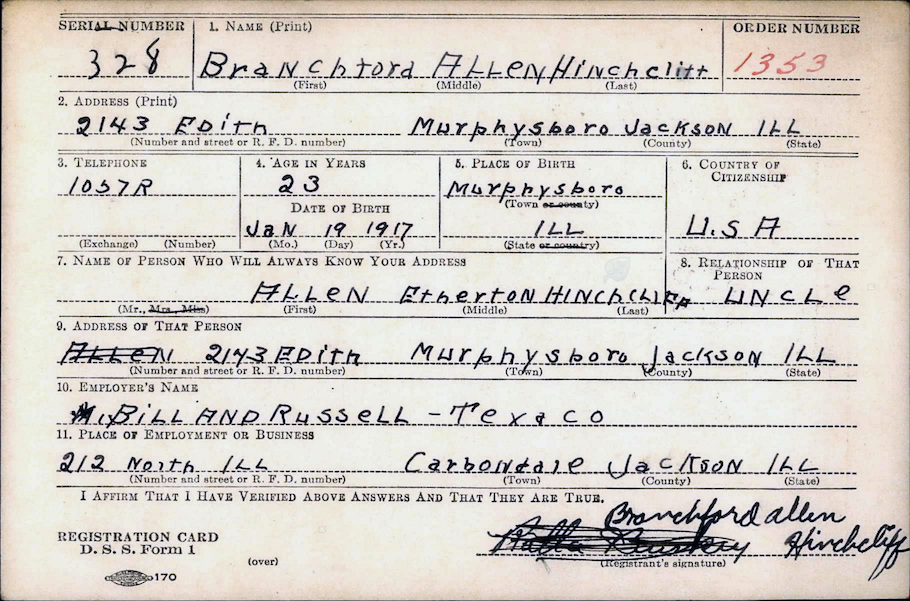 SERIAL NUMBER 1. NAME (Print) ORDER NUMBER
328 Branchford ALLEN Hinchcliff 1353
(First) (Middle) (Last)
2. ADDRESS (Print)
2143 EDith Murphysboro JACKSON ILL
(Number and street or R. F. D. number) (Town) (County) (State)
3. TELEPHONE 4. AGE IN YEARS 5. PLACE OF BIRTH 6. COUNTRY OF CITIZENSHIP
1057R 23 Murphysboro
DATE OF BIRTH (Town or county)
JAN 19 1917 ILL U.S A
(Exchange) (Number) (Mo.) (Day) (Yr.) (State or country)
7. NAME OF PERSON WHO WILL ALWAYS KNOW YOUR ADDRESS 8. RELATIONSHIP OF THAT PERSON
ALLEN EthertoN HINchcliff UNCLe
(Mr., Mrs., Miss) (First) (Middle) (Last)
9. ADDRESS OF THAT PERSON
ALLEN 2143 EDith Murphysboro JACKSON ILL
(Number and street or R. F. D. number) (Town) (County) (State)
10. EMPLOYER'S NAME
BILL AND RUSSELL - TEXACO
11. PLACE OF EMPLOYMENT OR BUSINESS
212 North ILL Carbondale JACKSON ILL
(Number and street or R. F. D. number) (Town) (County) (State)
I AFFIRM THAT I HAVE VERIFIED ABOVE ANSWERS AND THAT THEY ARE TRUE.
Branchford allen
Hinchcliff
REGISTRATION CARD
D. S. S. Form 1
(over) (Registrant's signature)
170